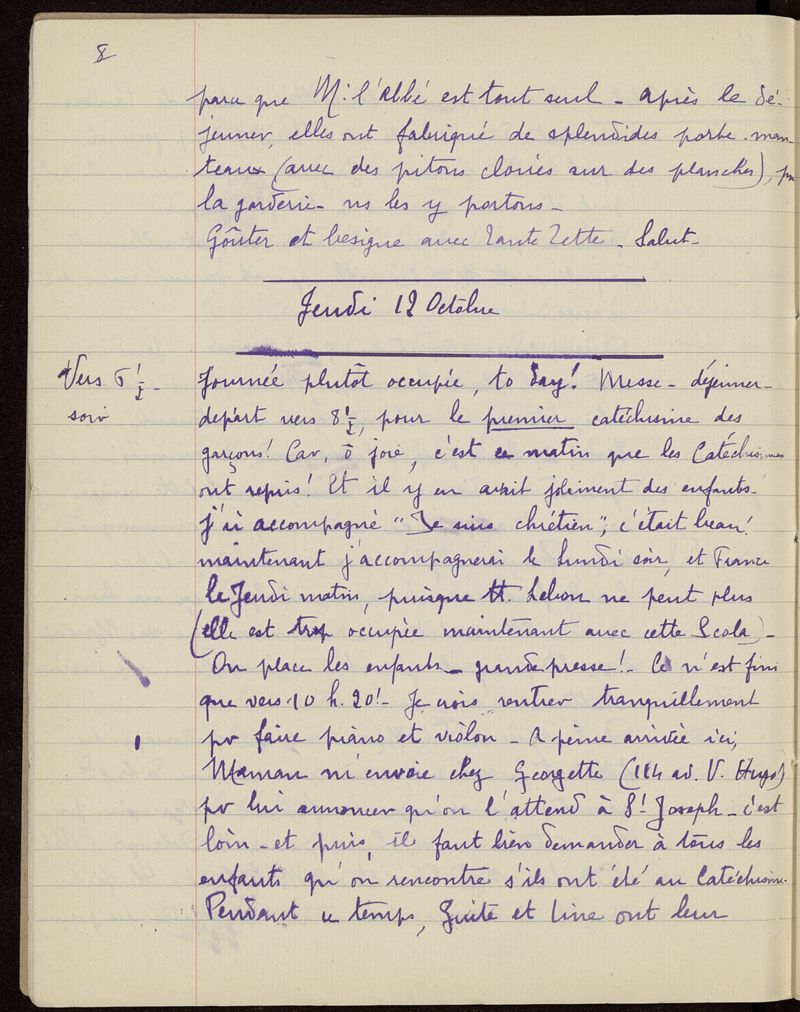 8
parce que M. l'abbé est tout seul - après le dé-
jeuner, elles ont fabriqué de splendides porte-man-
teaux (avec des pitons cloués sur des planches), pr
la garderie - ns les y portons -
Goûter et besigue avec Tante Zette - Salut -
Jeudi 12 Octobre
Vers 6 1/2 -
soir
Journée plutôt occupée, to day! Messe - déjeuner -
départ vers 8 1/2, pour le premier catéchisme des
garçons! Car, ô joie, c'est ce matin que les Catéchismes
ont repris! Et il y en avait joliment des enfants -
J'ai accompagné "Je suis chrétien", c'était beau!
maintenant j'accompagnerai le Lundi soir, et France
le Jeudi matin, puisque Lebon ne peut plus
(elle est trop occupée maintenant avec cette Scola) -
On place les enfants - grande presse! - Ce n'est fini
que vers 10 h. 20! - Je crois rentrer tranquillement
pr faire piano et violon - A peine arrivée ici,
Maman m'envoie chez Georgette (114 av. V. Hugo)
pr lui annoncer qu'on l'attend à St Joseph - c'est
loin - et puis, il faut bien demander à tous les
enfants qu'on rencontre s'ils ont été au Catéchisme.
Pendant ce temps, Guite et Line ont leur